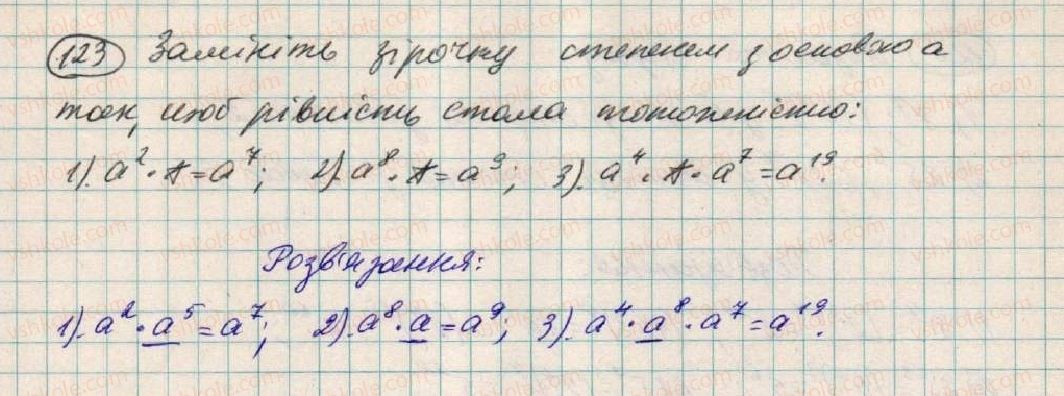 123 Замініть зірочку степенем з основою a
так, щоб рівність стала тотожністю:
1). a² · * = a⁷; 2). a⁸ · * = a⁹; 3). a⁴ · * · a⁷ = a¹⁹.
Розв'язання:
1). a² · a⁵ = a⁷; 2). a⁸ · a = a⁹; 3). a⁴ · a⁸ · a⁷ = a¹⁹.